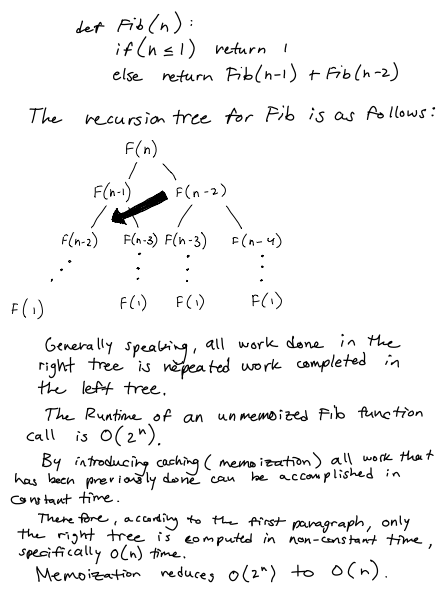 def Fib(n):
if(n ≤ 1) return 1
else return Fib(n-1) + Fib(n-2)
The recursion tree for Fib is as follows:
F(n)
F(n-1) F(n-2)
F(n-2) F(n-3) F(n-3) F(n-4)
F(1) F(1) F(1) F(1)
Generally speaking, all work done in the
right tree is repeated work completed in
the left tree.
The Runtime of an unmemoized Fib function
call is O(2ⁿ).
By introducing caching (memoization) all work that
has been previously done can be accomplished in
constant time.
Therefore, according to the first paragraph, only
the right tree is computed in non-constant time,
specifically O(n) time.
Memoization reduces O(2ⁿ) to O(n).